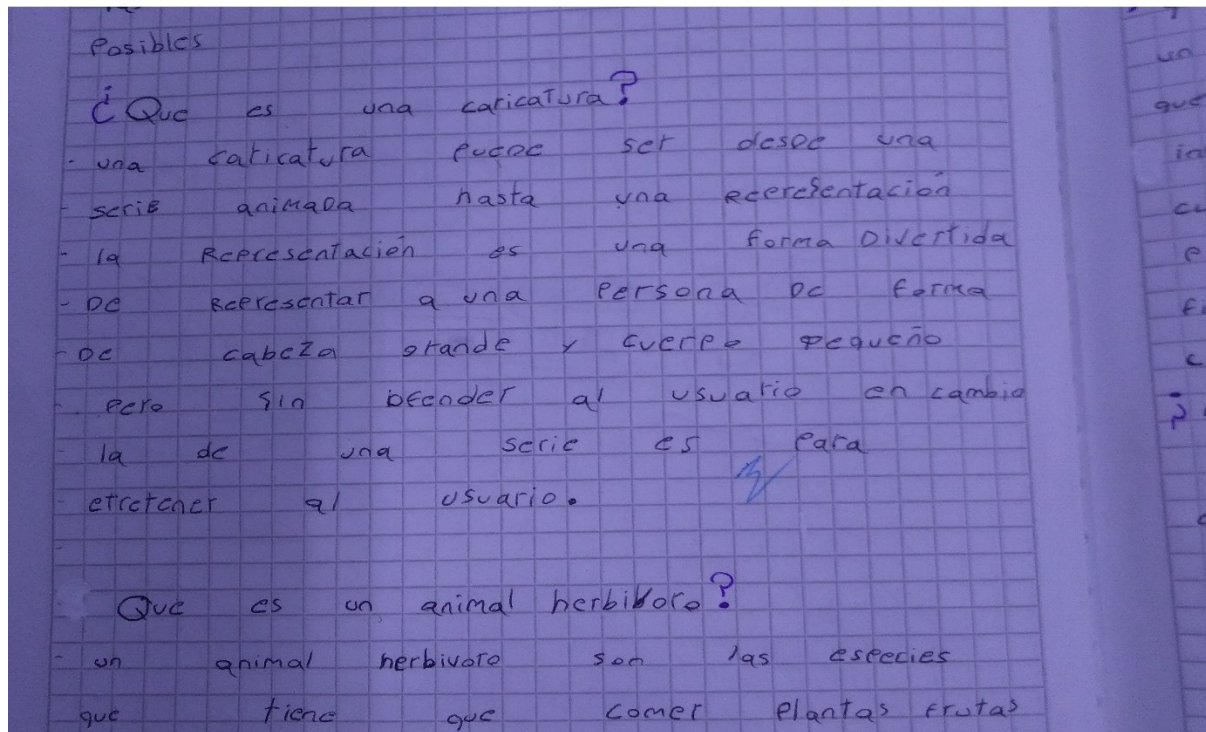 Posibles
¿Que es una caricatura?
- una caricatura puede ser desde una
- serie animada hasta una representación
- la Representación es una forma Divertida
- De Representar a una Persona De forma
- De cabeza grande y cuerpo pequeño
- pero sin ofender al usuario en cambio
- la de una serie es Para
- etretener al usuario.
Que es un animal herbivoro?
- un animal herbivoro son las especies
que tiene que comer Plantas frutas
un
que
in
cu
e
fi
c
?